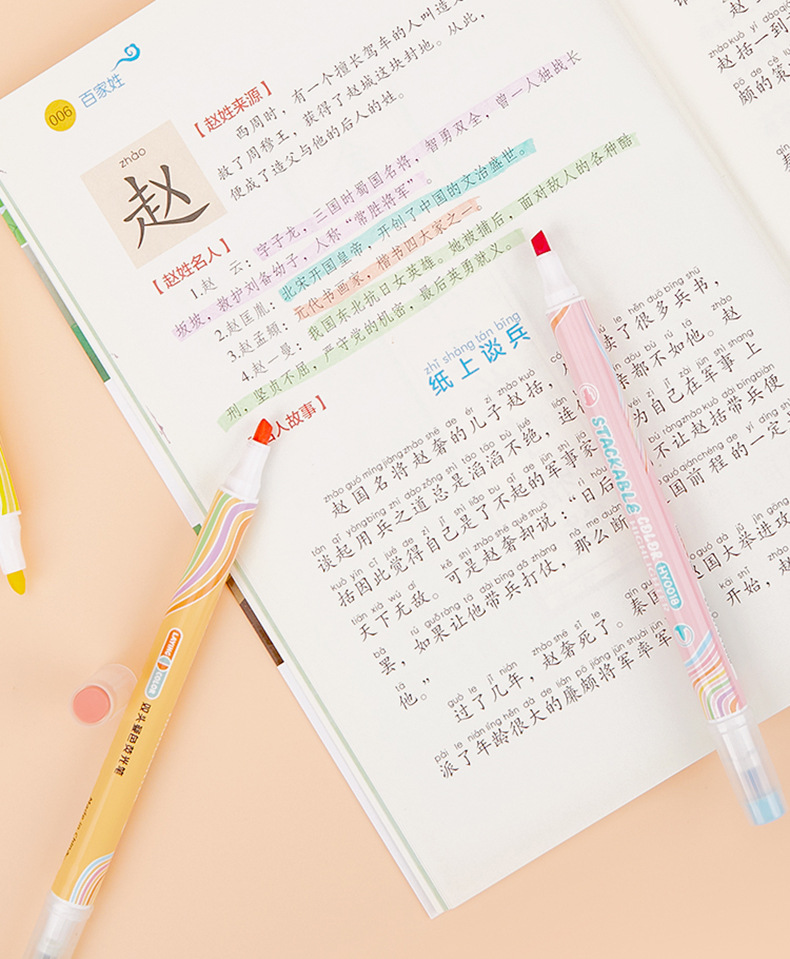 006 百家姓
zhào
赵
【赵姓来源】
西周时，有一个擅长驾车的人叫造
救了周穆王，获得了赵城这块封地。从此，
便成了造父与他的后人的姓。
【赵姓名人】
1.赵 云：字子龙，三国时蜀国名将，智勇双全，曾一人独战长
坂坡，救护刘备幼子，人称“常胜将军”。
2.赵匡胤：北宋开国皇帝，开创了中国的文治盛世。
3.赵孟頫：元代书画家，楷书四大家之一。
4.赵一曼：我国东北抗日女英雄。她被捕后，面对敌人的各种酷
刑，坚贞不屈，严守党的机密，最后英勇就义。
人故事】
zhǐ shàng tán bīng
纸上谈兵
zhào guó míng jiàng zhào shē de ér zi zhào kuò
赵国名将赵奢的儿子赵括，
读了很多兵书，
tán qǐ yòng bīng zhī dào zǒng shì tāo tāo bù jué
谈起用兵之道总是滔滔不绝，连
亲都不如他。赵
kuò yīn cǐ jué de zì jǐ shì liǎo bu qǐ de jūn shì jiā
括因此觉得自己是了不起的军事家
为自己在军事上
tiān xià wú dí
天下无敌。可是赵奢却说：“日后
不让赵括带兵便
bà rú guǒ ràng tā dài bīng dǎ zhàng
罢，如果让他带兵打仗，那么断
国前程的一定
tā
他。”
guò le jǐ nián zhào shē sǐ le
过了几年，赵奢死了。秦国
赵国大举进攻
pài le nián líng hěn dà de lián pō jiāng jūn shuài jūn
派了年龄很大的廉颇将军率军
开始，赵
赵括一到
颇的策
STACKABLE
COLOR
HIGHLIGHTER
HY001B
LAYING COLOR
双头叠色荧光笔
Made in China